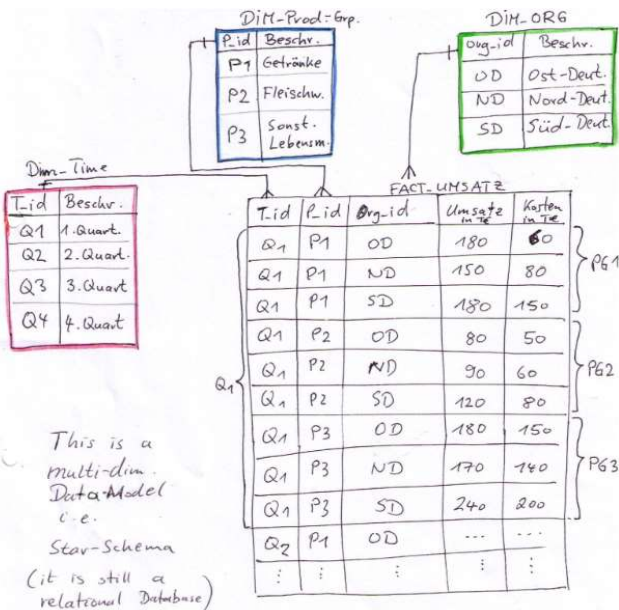 DiM-Prod-Grp.
P_id Beschr.
P1 Getränke
P2 Fleischw.
P3 Sonst. Lebensm.
DiM-ORG
Org_id Beschr.
OD Ost-Deut.
ND Nord-Deut.
SD Süd-Deut.
Dim-Time
T_id Beschr.
Q1 1.Quart.
Q2 2.Quart.
Q3 3.Quart
Q4 4.Quart
FACT_UMSATZ
T_id P_id Org_id Umsatz in T€ Kosten in T€
Q1 P1 OD 180 60
Q1 P1 ND 150 80
Q1 P1 SD 180 150
Q1 P2 OD 80 50
Q1 P2 ND 90 60
Q1 P2 SD 120 80
Q1 P3 OD 180 150
Q1 P3 ND 170 140
Q1 P3 SD 240 200
Q2 P1 OD ... ...
Q1
PG1
PG2
PG3
This is a
multi-dim.
Data-Model
i.e.
Star-Schema
(it is still a
relational Database)